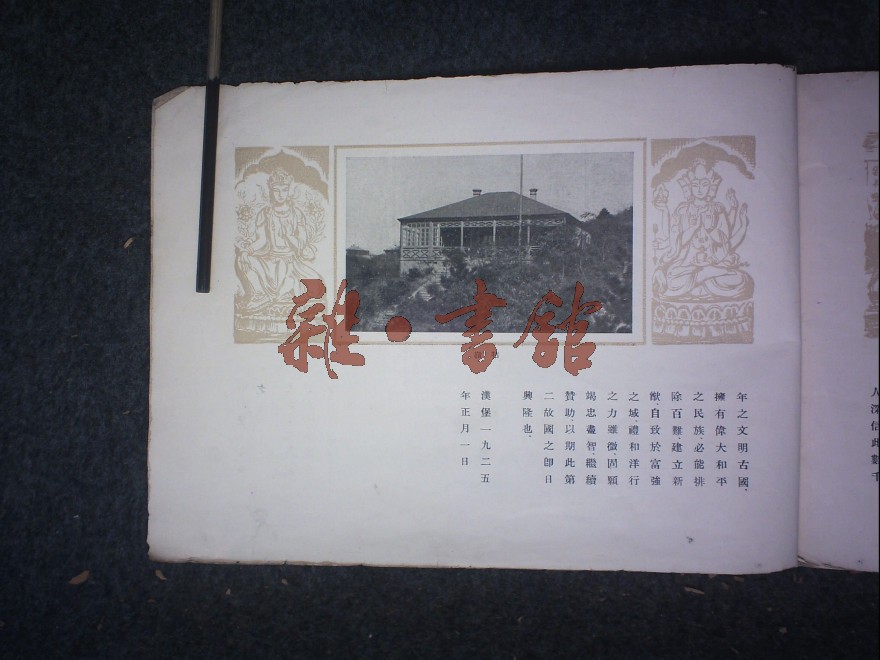 雜·書館
人深信此數千
年之文明古國、
擁有偉大和平
之民族、必能排
除百難、建立新
猷、自致於富強
之域、禮和洋行
之力雖微、固願
竭忠盡智、繼續
贊助、以期此第
二故國之卽日
興隆也、
漢堡一九二五
年正月一日